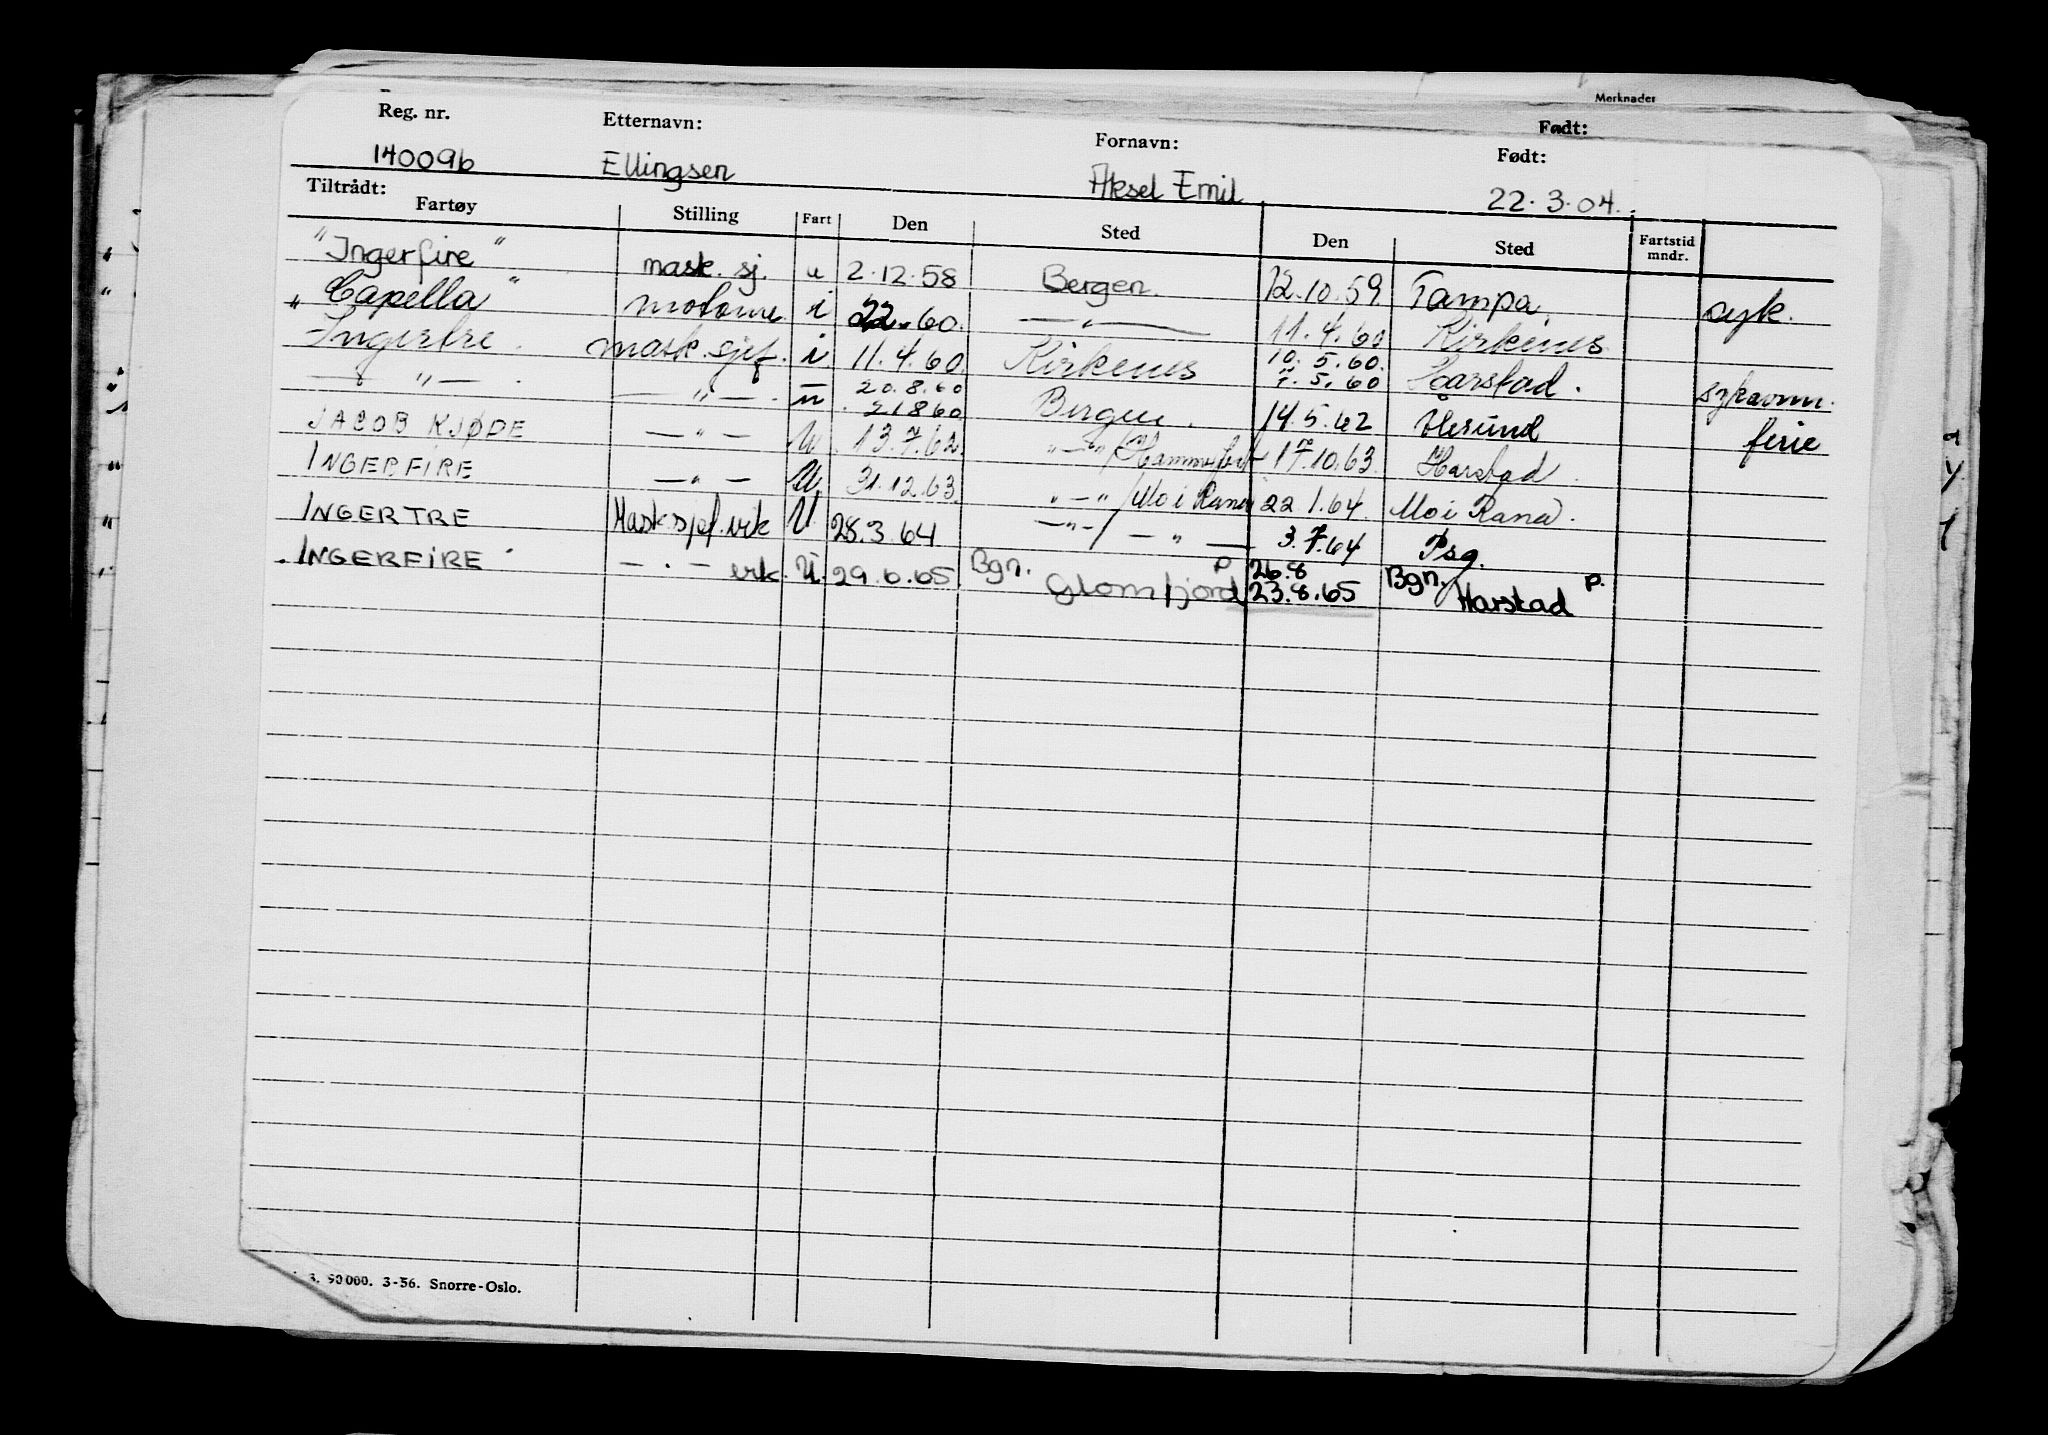 Merknader
Født:
Reg. nr. Etternavn: Fornavn: Født:
140096 Ellingsen Aksel Emil 22.3.04.
Tiltrådt:
Fartøy Stilling Fart Den Sted Den Sted Fartstid mndr.
"Ingerfire" mask. sj. u 2.12.58 Bergen. 12.10.59 Tampa. syk.
"Capella" motorme. i 22.60. — " — 11.4.60 Kirkenes
Ingertre. mask. sjef. i. 11.4.60. Kirkenes 10.5.60. 7.5.60 Harstad. sykavm.
— " — . — " — . u 20.8.60 21860 Bergen. 14.5.62 Ålesund ferie
JACOB KJØDE — " — U 13.7.62. " — " / Hammerfest 17.10.63. Harstad.
INGERFIRE — " — U 31.12.63. " — " / Mo i Rana 22.1.64. Mo i Rana.
INGERTRE Mask.sjef. vik U 28.3.64 — " — / — " — 3.7.64 Psg.
INGERFIRE — . — U. 29.6.65. Bgn. p Glomfjord 26.8 23.8.65 Bgn. p. Harstad
3. 90000. 3-56. Snorre-Oslo.